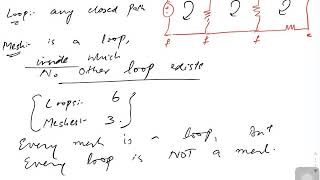 Loop:- any closed path
Mesh:- is a loop,
inside which
No other loop exists
Loops:- 6
Meshes:- 3.
Every mesh is a loop, but
Every loop is NOT a mesh.
f f f e